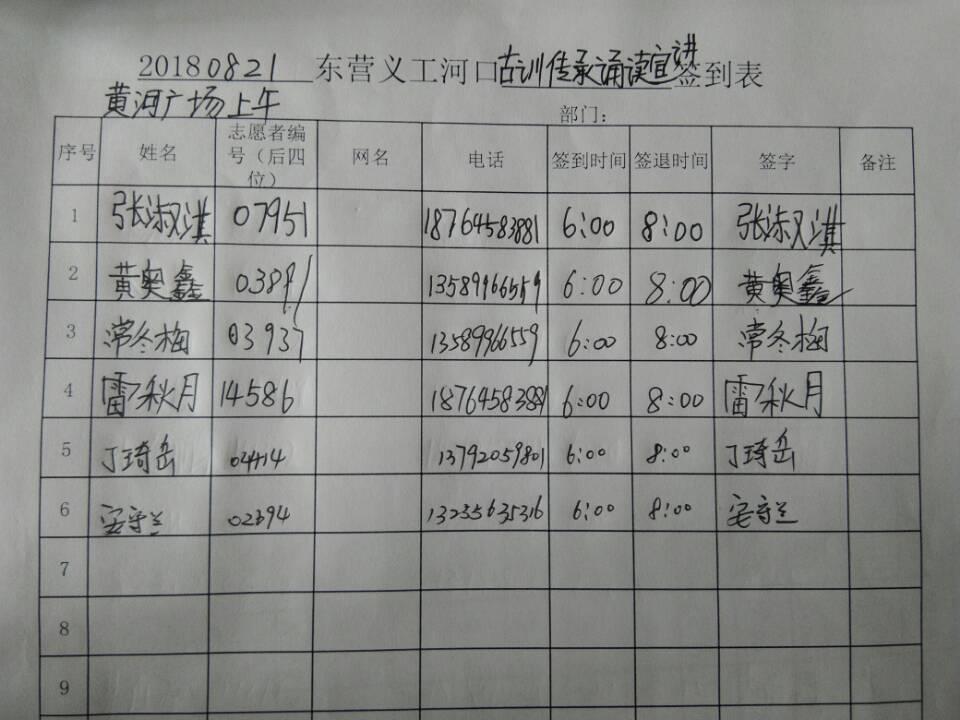 20180821 东营义工河口古训传承诵读宣讲签到表
黄河广场上午
部门：
序号 姓名 志愿者编号（后四位） 网名 电话 签到时间 签退时间 签字 备注
1 张淑淇 07951 18764583881 6:00 8:00 张淑淇
2 黄奥鑫 03891 13589966559 6:00 8:00 黄奥鑫
3 常冬梅 03937 13589966559 6:00 8:00 常冬梅
4 雷秋月 14586 18764583881 6:00 8:00 雷秋月
5 丁琦岳 13792059801 6:00 8:00 丁琦岳
6 安守兰 02694 13235635316 6:00 8:00 安守兰
7
8
9